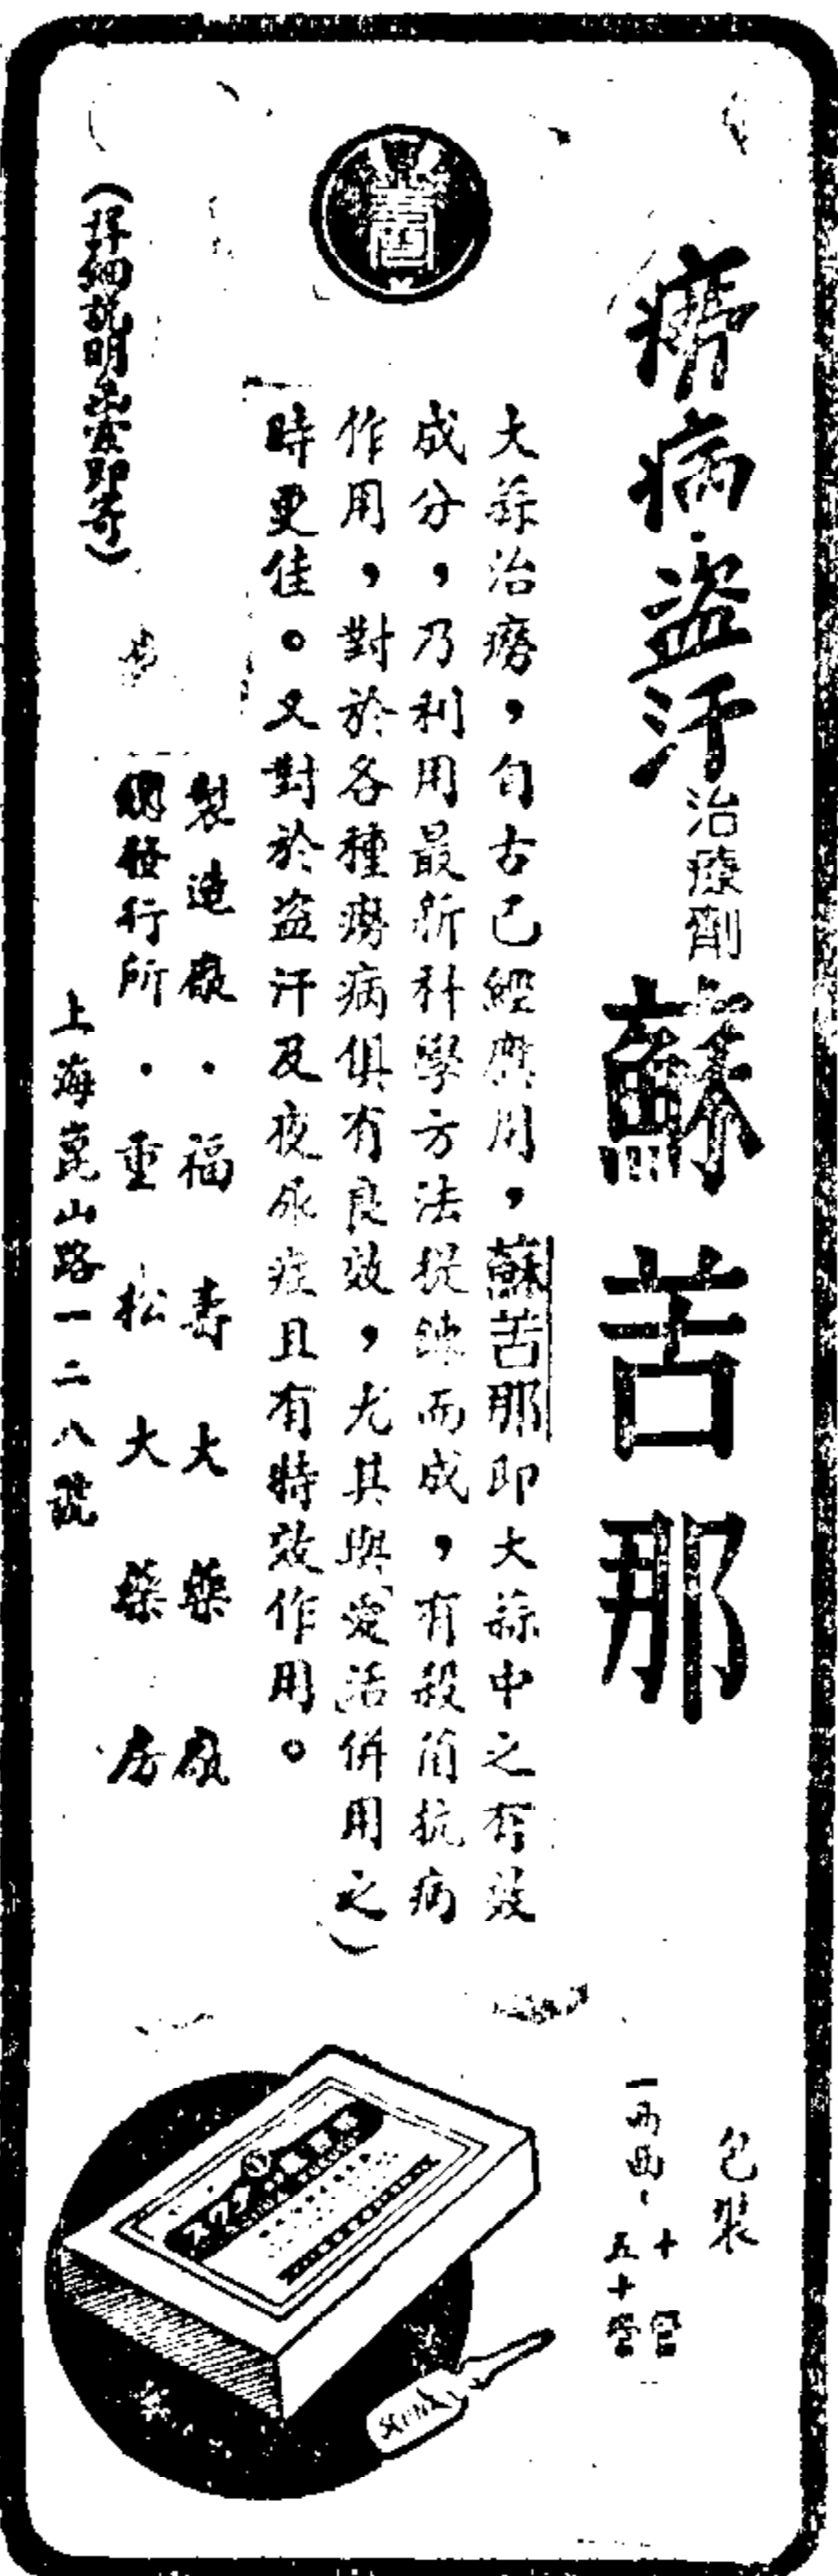 癆病·盜汗
治療劑
蘇苦那
大蒜治癆，自古已經應用，蘇苦那即大蒜中之有效
成分，乃利用最新科學方法提鍊而成，有殺菌抗病
作用，對於各種癆病俱有良效，尤其與愛活併用之
時更佳。又對於盜汗及夜尿症且有特效作用。
製造廠·福壽大藥廠
總發行所·重松大藥房
上海崑山路一二八號
（詳細説明函索即寄）
包裝
十管
五十管
スクナー